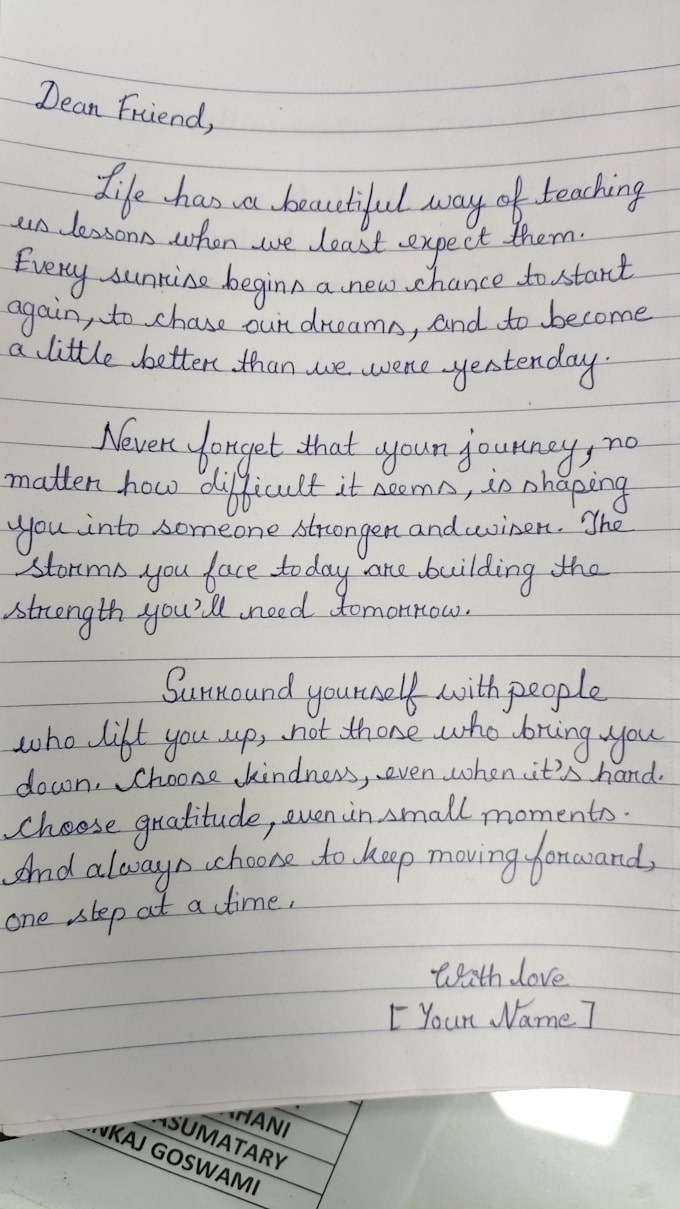 Dear Friend,
Life has a beautiful way of teaching
us lessons when we least expect them.
Every sunrise begins a new chance to start
again, to chase our dreams, and to become
a little better than we were yesterday.
Never forget that your journey, no
matter how difficult it seems, is shaping
you into someone stronger and wiser. The
storms you face today are building the
strength you'll need tomorrow.
Surround yourself with people
who lift you up, not those who bring you
down. Choose kindness, even when it's hard.
Choose gratitude, even in small moments.
And always choose to keep moving forward,
one step at a time.
With love
[Your Name]
AHANI
ASUMATARY
NKAJ GOSWAMI